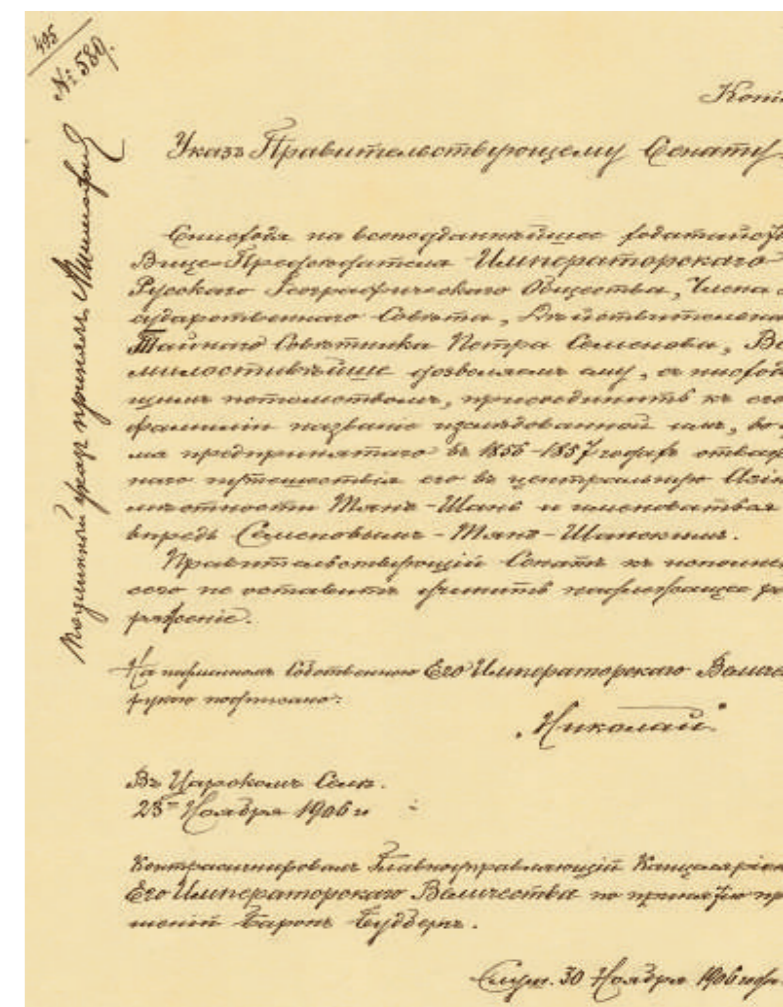 495
№ 589.
Копія
Указъ Правительствующему Сенату.
Снисходя на всеподданнѣйшее ходатайство
Вице-Предсѣдателя Императорскаго
Русскаго Географическаго Общества, Члена Го
сударственнаго Совѣта, Дѣйствительна
Тайнаго Совѣтника Петра Семенова, Все
милостивѣйше дозволяемъ ему, съ нисходя
щимъ потомствомъ, присоединить къ его
фамиліи названіе изслѣдованной имъ, во вре
мя предпринятаго въ 1856-1857 годахъ отваж
наго путешествія его въ центральную Азію
мѣстности Тянъ-Шань и именоваться
впредь Семеновымъ-Тянъ-Шанскимъ.
Правительствующій Сенатъ къ исполне
сего не оставитъ учинить надлежащее ра
ряженіе.
На подлинномъ Собственною Его Императорскаго Величес
рукою подписано:
„Николай"
Въ Царскомъ Селѣ.
23го Ноября 1906 г
Контрасигнировалъ Главноуправляющій Канцеляріею
Его Императорскаго Величества по принятію про
шеній Баронъ Будбергъ.
30 Ноября 1906 года
Подлинный указъ принялъ